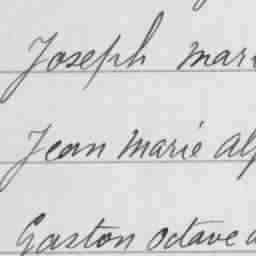 Joseph mari
Jean Marie Alp
Gaston octave a